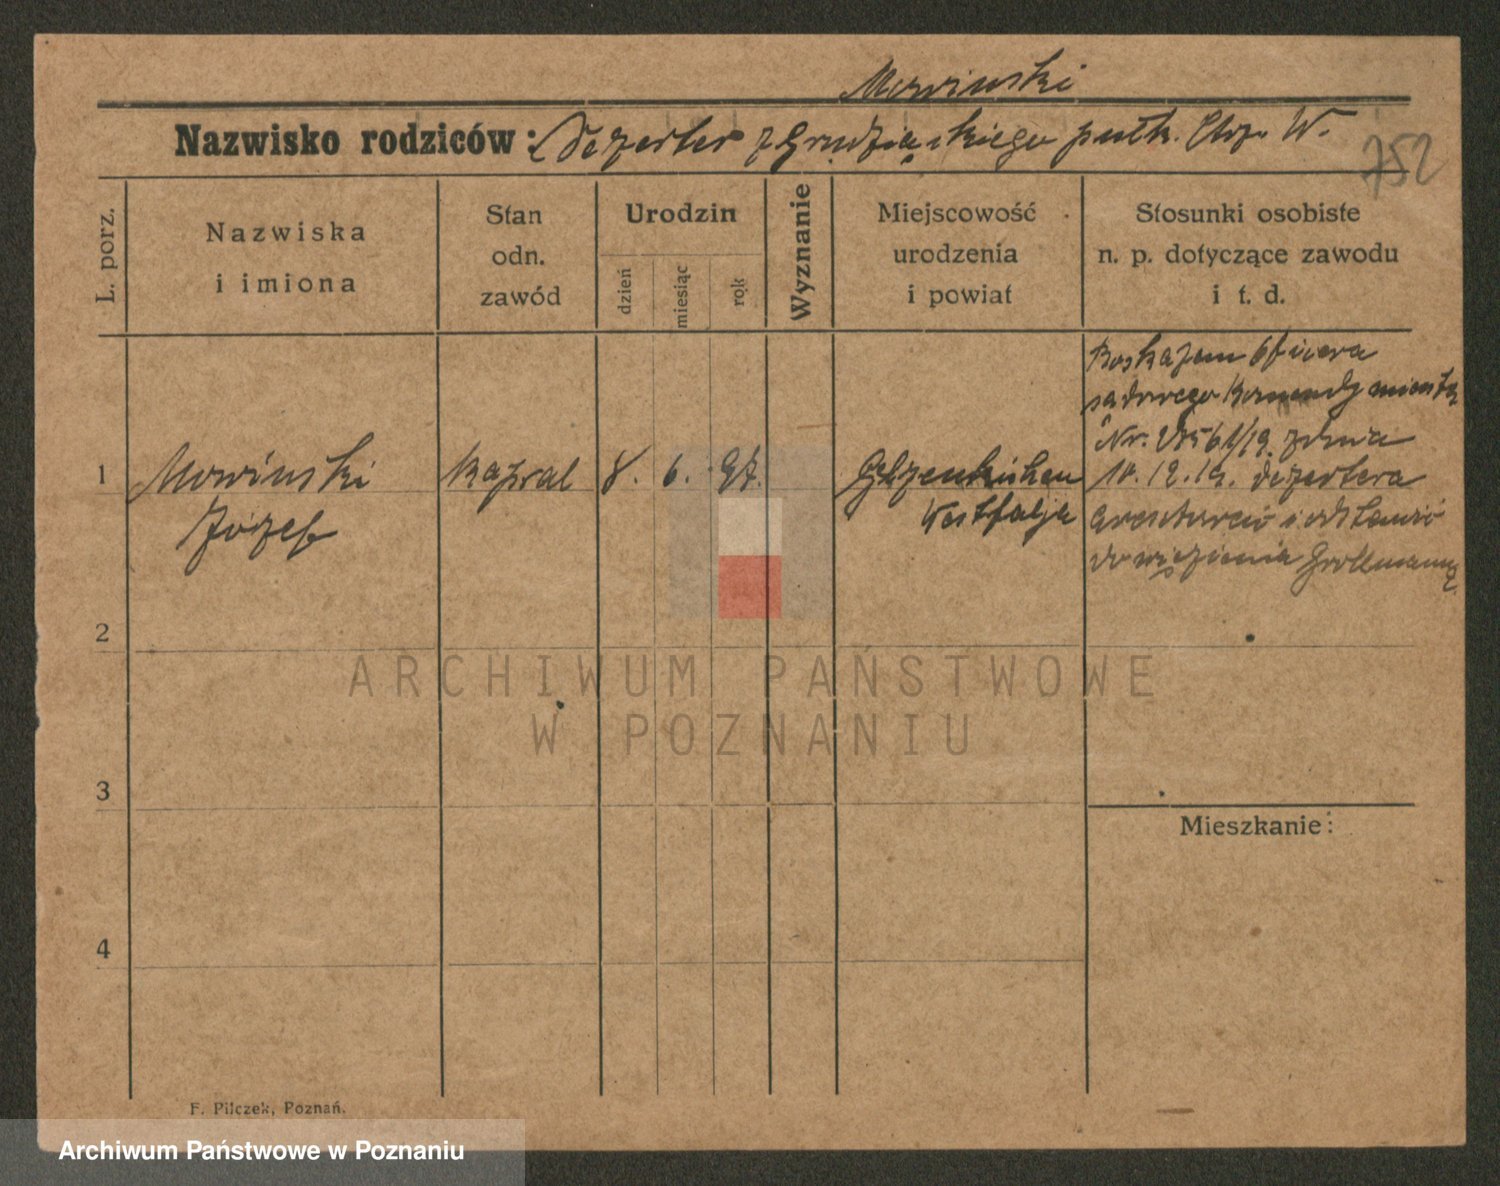 Mowinski
Nazwisko rodziców: Dezerter z Grudziąskiego pułk. W.
752
L. porz.
Nazwiska
i imiona
Stan
odn.
zawód
Urodzin
dzień
miesiąc
rok
Wyznanie
Miejscowość
urodzenia
i powiat
Stosunki osobiste
n. p. dotyczące zawodu
i t. d.
Roskazem Oficera
sądowego Komendy miasta
Nr. /19 z dnia
10.12.19. dezertera
aresztować i odstawić
do więzienia Grollmanna
1
Mowinski
Józef
Kapral
8.
6.
97.
Gelzenkirchen
Westfalja
2
3
Mieszkanie:
4
F. Pilczek, Poznań.
ARCHIWUM PAŃSTWOWE
W POZNANIU
Archiwum Państwowe w Poznaniu